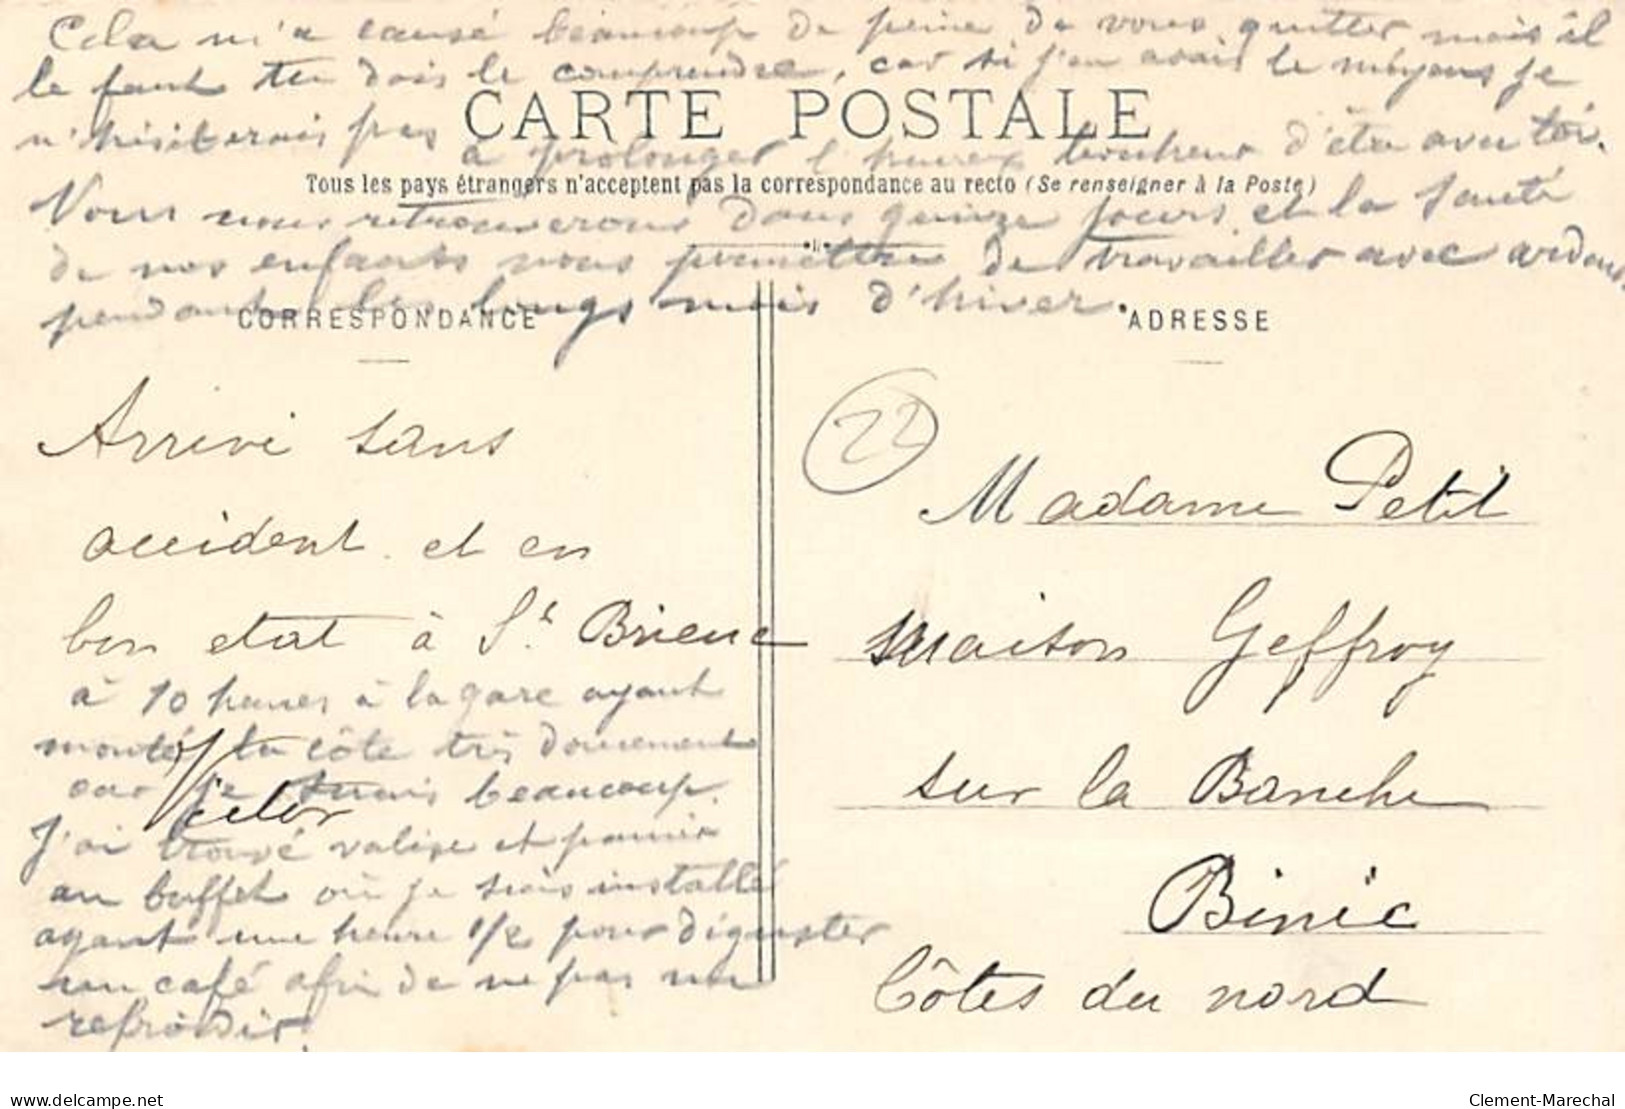 Cela m'a causé beaucoup de peine de vous quitter mais il
le faut tu dois le comprendre, car si j'en avais le moyens je
n'hésiterais pas à prolonger l'heureux bonheur d'être avec toi.
CARTE POSTALE
Tous les pays étrangers n'acceptent pas la correspondance au recto (Se renseigner à la Poste)
Nous nous retrouverons dans quinze jours et la santé
de nos enfants nous permettra de travailler avec ardeur
pendant les longs mois d'hiver.
CORRESPONDANCE
Arrivé sans
accident et en
bon etat à St. Brieuc
à 10 heures à la gare ayant
monté la côte très doucement
car je suais beaucoup.
Victor
J'ai trouvé valise et panier
au buffet où je suis installé
ayant une heure 1/2 pour diguster
un café afin de ne pas me
refroidir.
ADRESSE
22
Madame Petit
maison Geffroy
sur la Banche
Binic
Côtes du nord
Clement-Marechal